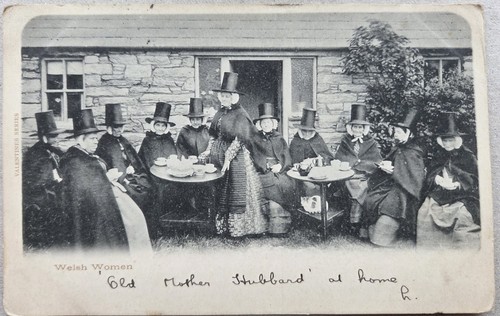 VALENTINES SERIES
Welsh Women
'Old Mother Hubbard' at home
h.